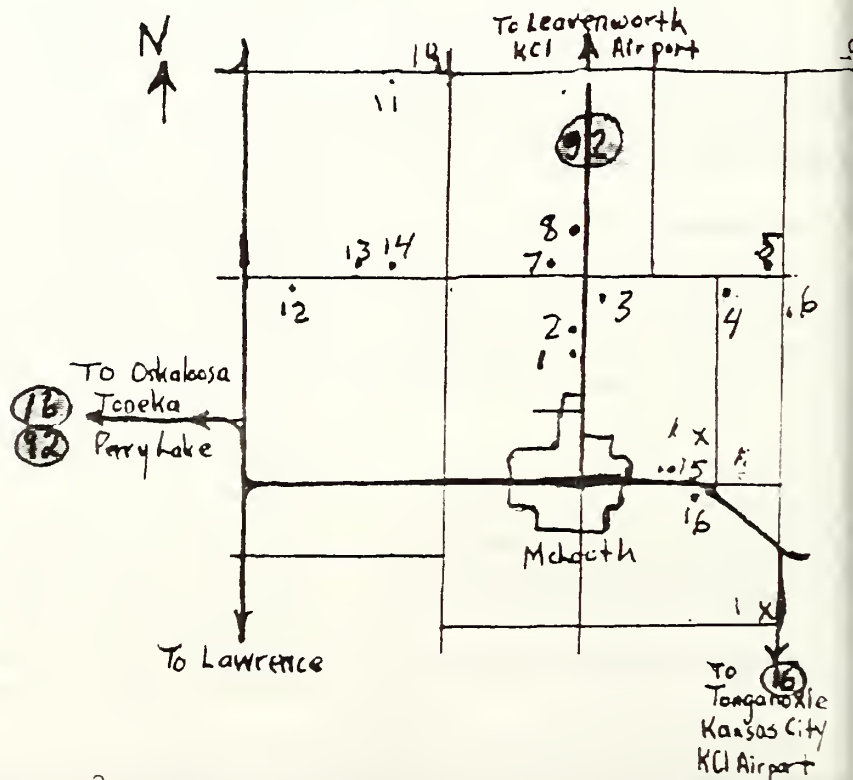 N
To Leavenworth
KCI Airport
10
11
92
8
13 14
7
5
12
3
4
6
2
1
To Oskaloosa
16
Toneka
92
Perry Lake
x
15
16
McLouth
1 x
To Lawrence
To 16
Tonganoxie
Kansas City
KCI Airport